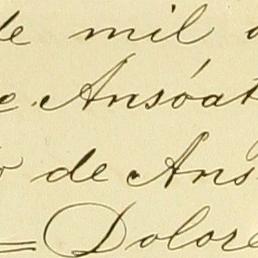 de mil
Ansóat
de Ans
= Dolore